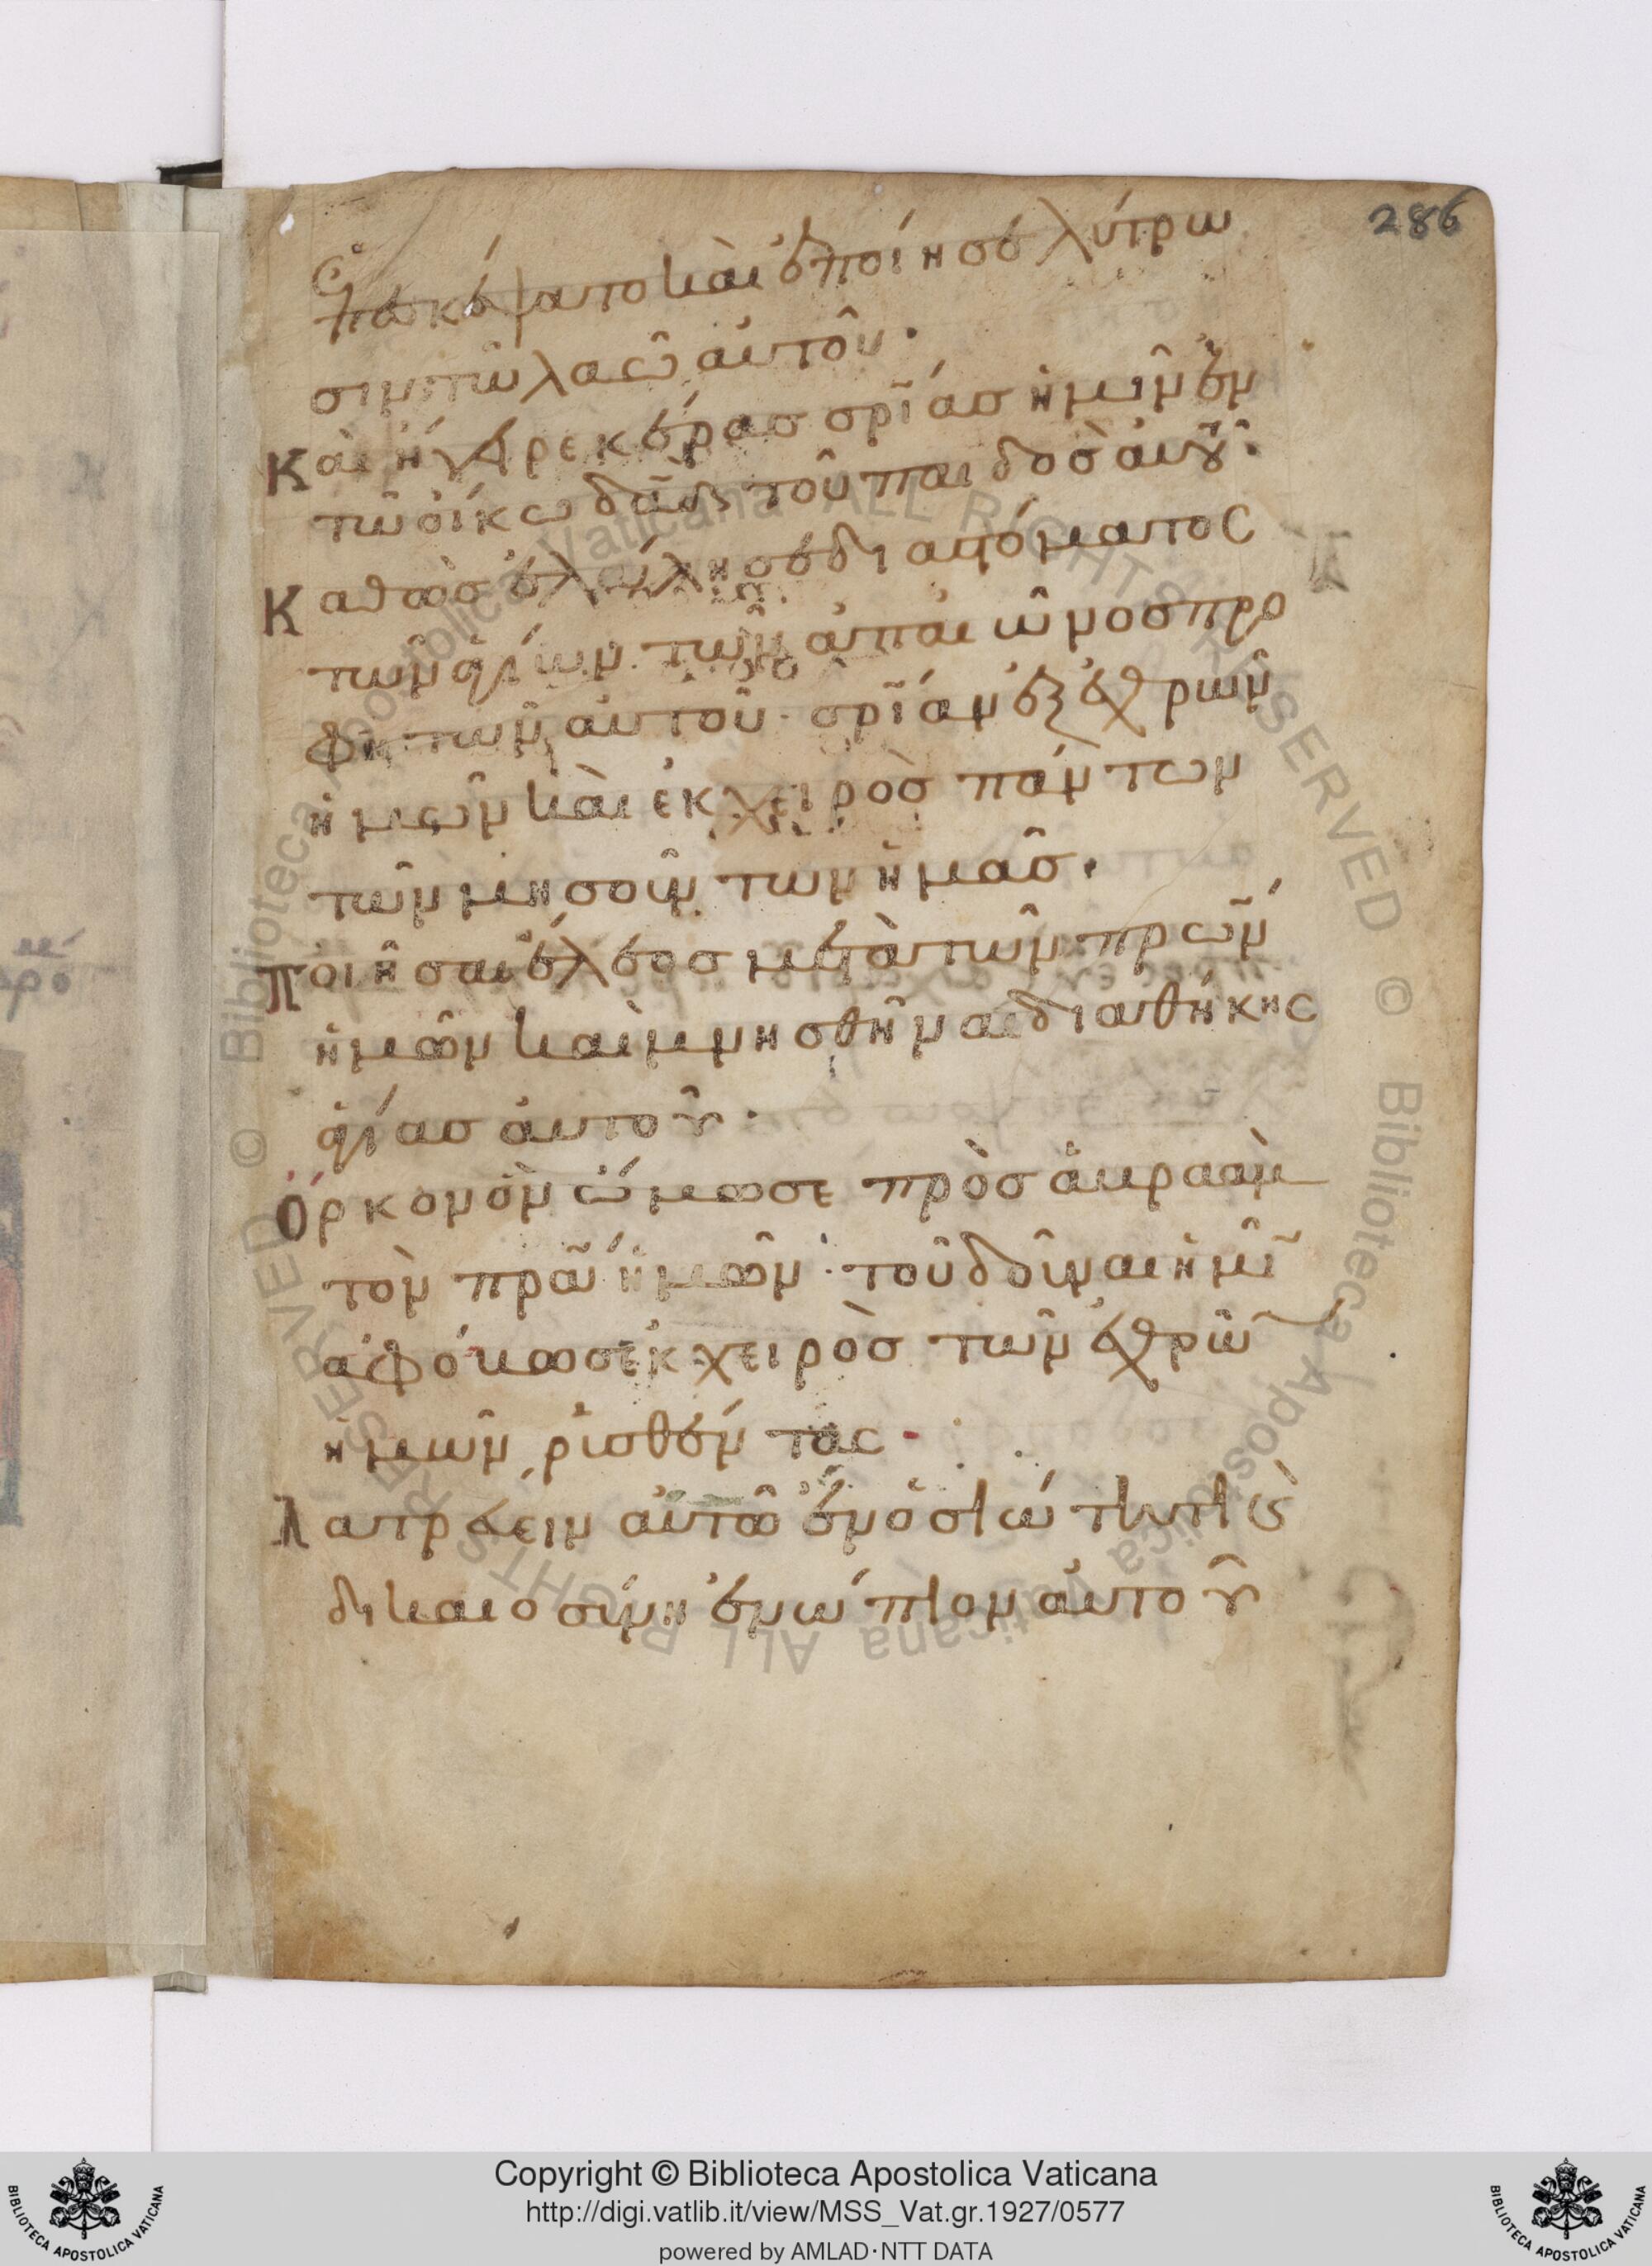 286
ἐπεσκέψατο καὶ ἐποίησε λύτρω
σιν τῶ λαῶ αὐτοῦ·
Καὶ ἤγειρε κέρας σρ̅ίας ἡμῖν ἐν
τῶ οἴκω δα̅δ τοῦ παιδὸς αὐτοῦ·
Καθὼς ἐλάλησε διὰ στόματος
τῶν ἁγίων τῶν ἀπ' αἰῶνος προ
φητῶν αὐτοῦ· σρ̅ίαν ἐξ ἐχθρῶν
ἡμῶν καὶ ἐκ χειρὸς πάντων
τῶν μισούντων ἡμᾶς·
Ποιῆσαι ἔλεος μετὰ τῶν πρ̅ων
ἡμῶν καὶ μνησθῆναι διαθήκης
ἁγίας αὐτοῦ·
Ὅρκον ὃν ὤμοσε πρὸς ἀβραὰμ
τὸν πρ̅α ἡμῶν· τοῦ δοῦναι ἡμῖ
ἀφόβως ἐκ χειρὸς τῶν ἐχθρῶ
ἡμῶν ῥυσθέντας·
Λατρεύειν αὐτῶ ἐν ὁσιότητι καὶ
δικαιοσύνη ἐνώπιον αὐτοῦ
© Biblioteca Apostolica Vaticana ALL RIGHTS RESERVED © Biblioteca Apostolica Vaticana ALL RIGHTS RESERVED
Copyright © Biblioteca Apostolica Vaticana
http://digi.vatlib.it/view/MSS_Vat.gr.1927/0577
powered by AMLAD·NTT DATA
BIBLIOTECA APOSTOLICA VATICANA
BIBLIOTECA APOSTOLICA VATICANA